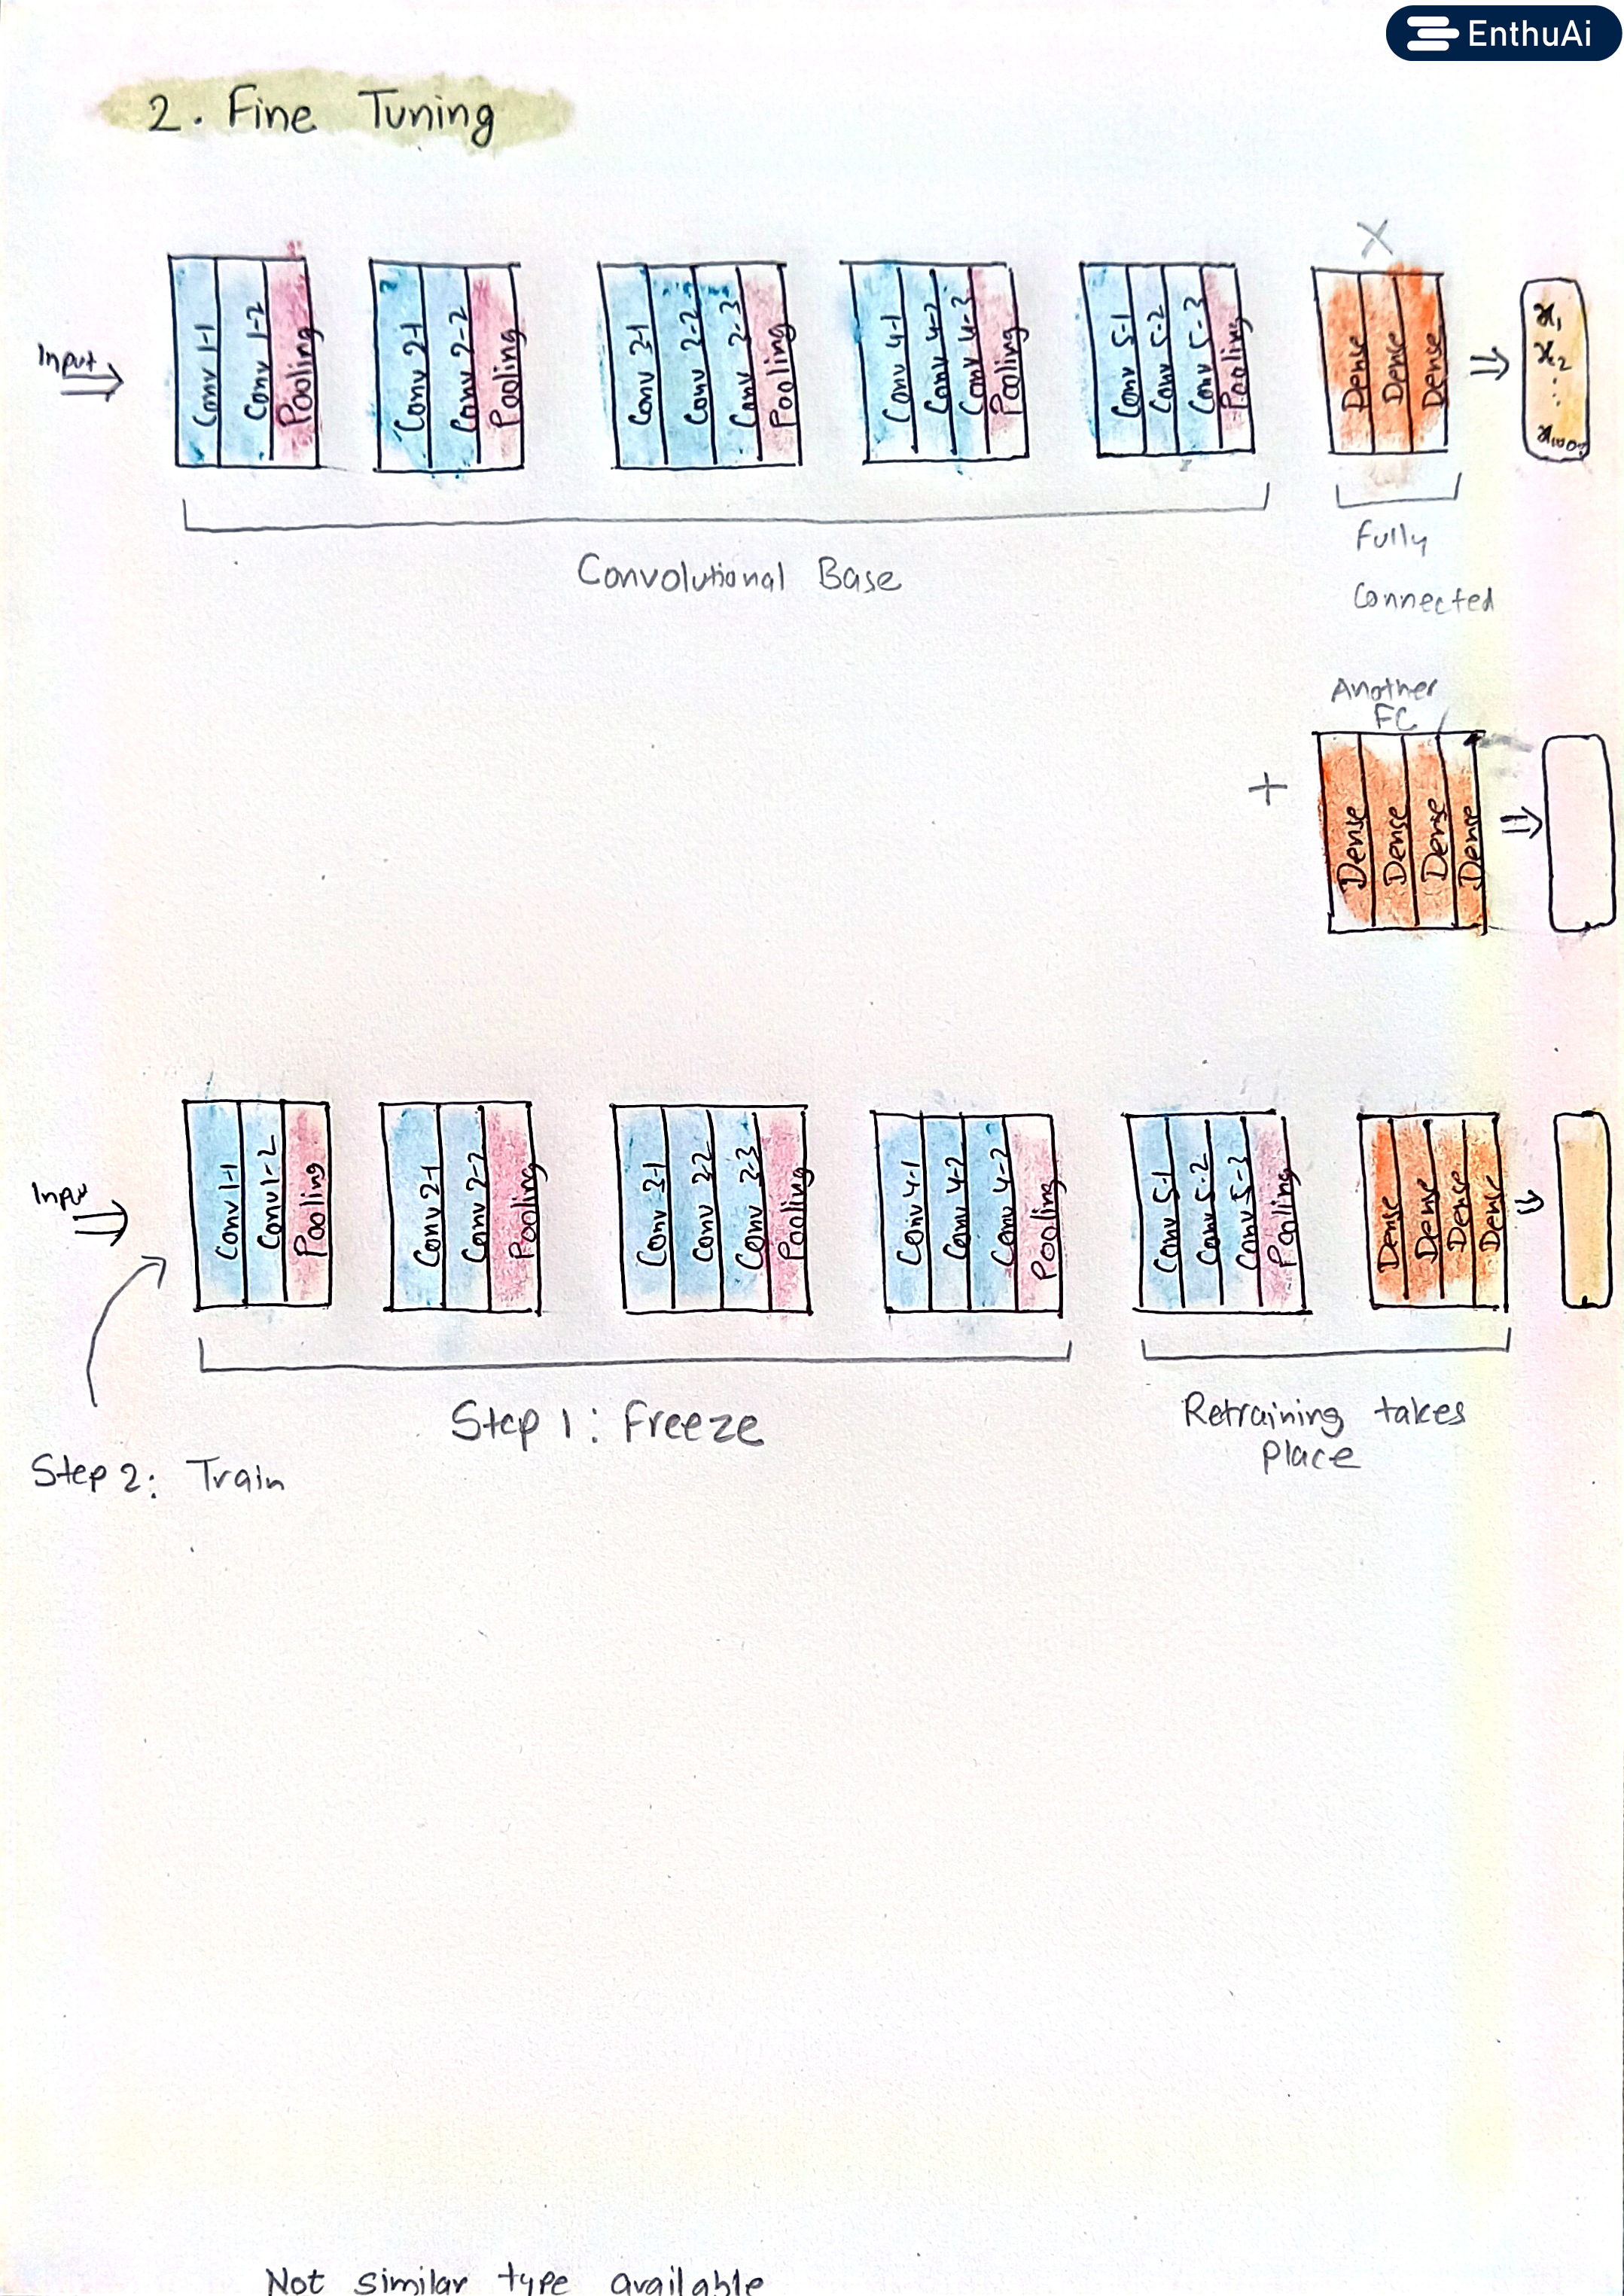 EnthuAi
2. Fine Tuning
Input
Conv 1-1
Conv 1-2
Pooling
Conv 2-1
Conv 2-2
Pooling
Conv 3-1
Conv 3-2
Conv 3-3
Pooling
Conv 4-1
Conv 4-2
Conv 4-3
Pooling
Conv 5-1
Conv 5-2
Conv 5-3
Pooling
X
Dense
Dense
Dense
x₁
x₂
⋮
Convolutional Base
Fully
Connected
Another
FC
+
Dense
Dense
Dense
Dense
Input
Conv 1-1
Conv 1-2
Pooling
Conv 2-1
Conv 2-2
Pooling
Conv 3-1
Conv 3-2
Conv 3-3
Pooling
Conv 4-1
Conv 4-2
Conv 4-2
Pooling
Conv 5-1
Conv 5-2
Conv 5-3
Pooling
Dense
Dense
Dense
Dense
Step 1: Freeze
Retraining takes
place
Step 2: Train
Not similar type available